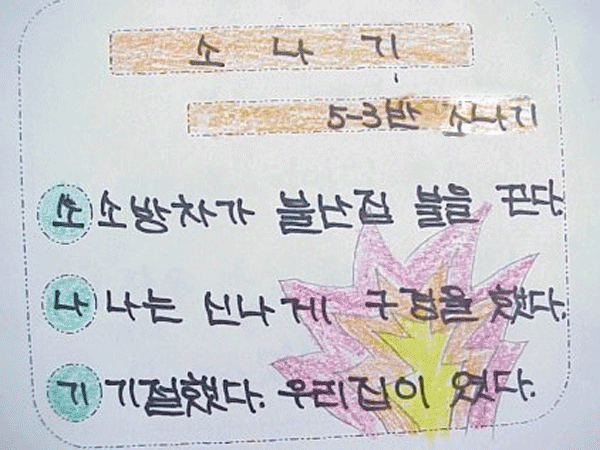 소 나 기
5-3반 소나기
소 소방차가 불난집 불을 끈다.
나 나는 신나게 구경을 했다.
기 기절했다. 우리집이 였다.